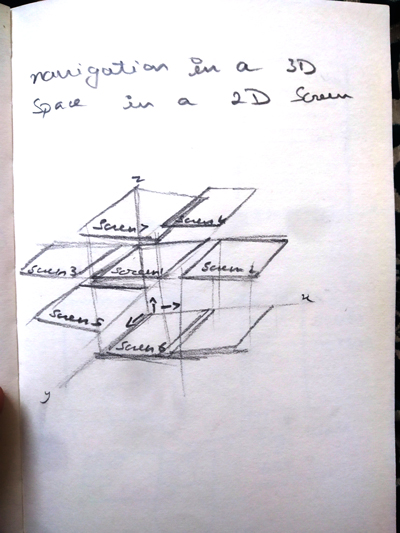 navigation in a 3D
Space in a 2D Screen
z
Scren 7
Scren 4
Scren 3
Scren 1
Scren 2
Scren 5
x
Scren 6
y